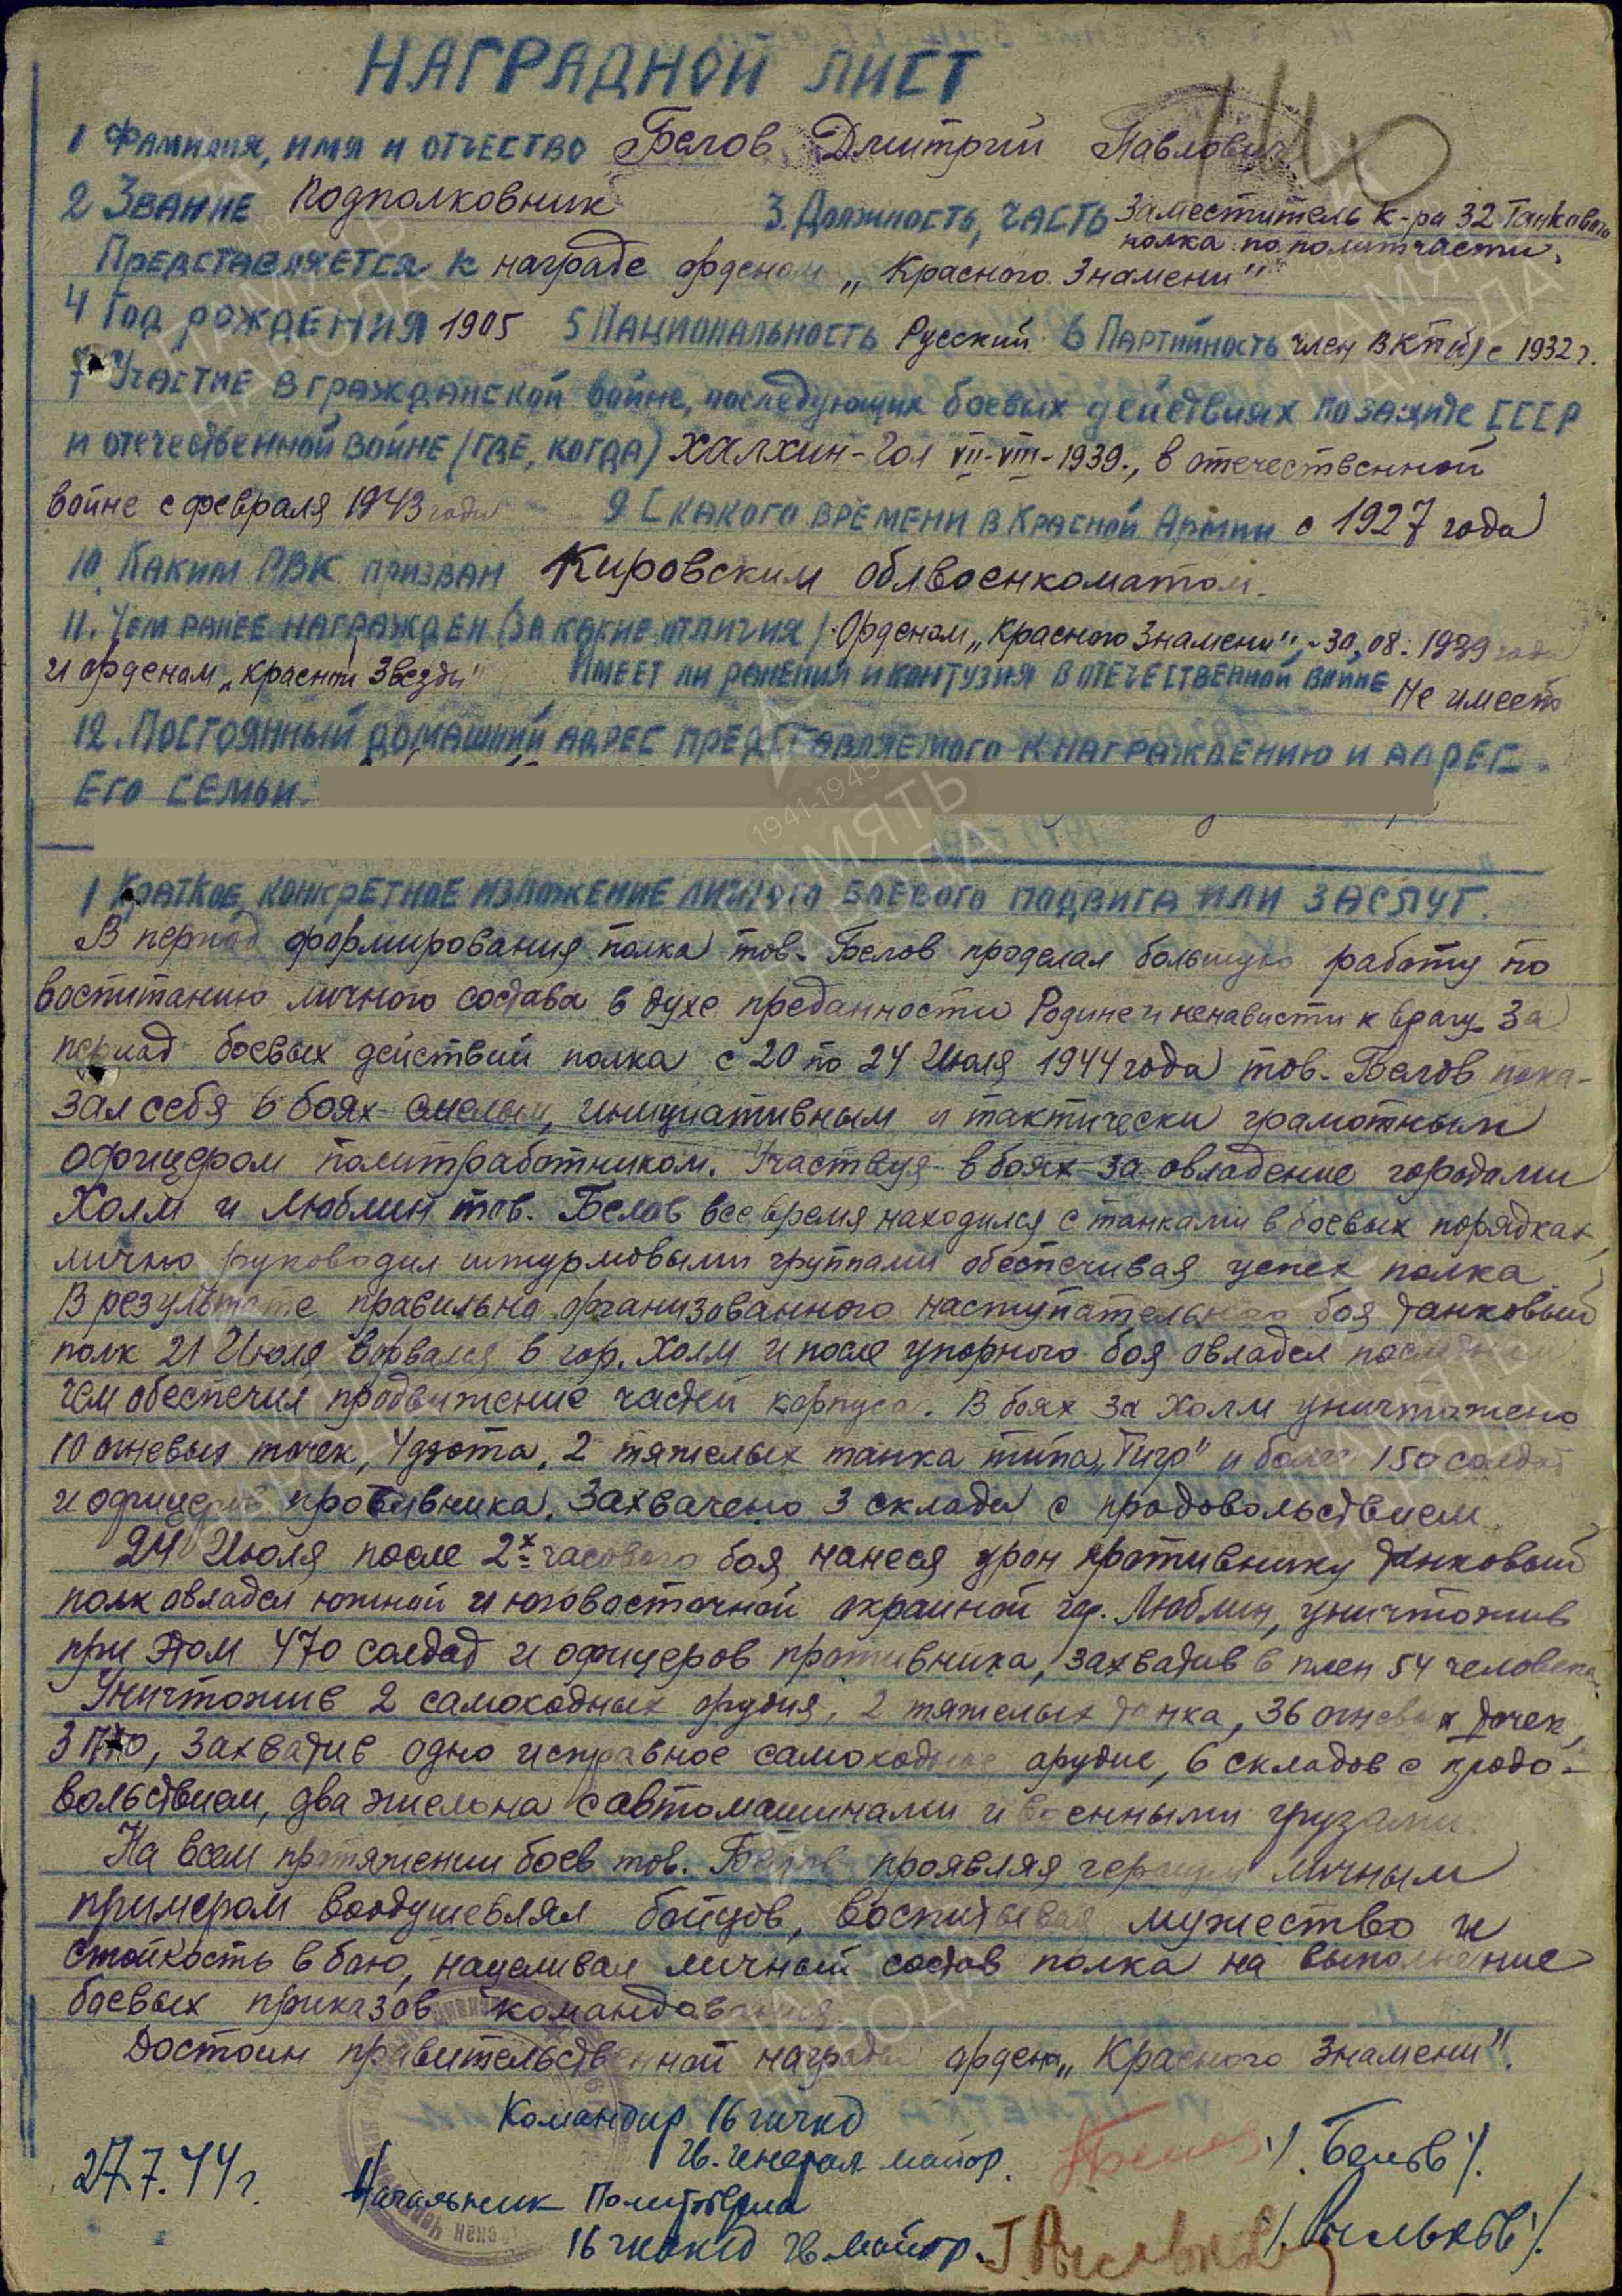 НАГРАДНОЙ ЛИСТ
140
1 Фамилия, имя и отчество Белов Дмитрий Павлович
2 Звание Подполковник 3. Должность, часть Заместитель к-ра 32 Танкового
полка по политчасти.
Представляется к награде орденом „Красного Знамени"
4 Год рождения 1905 5 Национальность Русский 6 Партийность член ВКП(б) с 1932 г.
7 Участие в гражданской войне, последующих боевых действиях по защите СССР
и отечественной войне (где, когда) Халхин-Гол VII-VIII-1939., в отечественной
войне с февраля 1943 года 9 С какого времени в Красной Армии с 1927 года
10. Каким РВК призван Кировским облвоенкоматом.
11. Чем ранее награжден (за какие отличия) Орденом „Красного Знамени", - 30.08.1939 года
и орденом „Красной Звезды" Имеет ли ранения и контузия в отечественной войне Не имеет
12. Постоянный домашний адрес представляемого к награждению и адрес
его семьи.
1 Краткое, конкретное изложение личного боевого подвига или заслуг.
В период формирования полка тов. Белов проделал большую работу по
воспитанию личного состава в духе преданности Родине и ненависти к врагу. За
период боевых действий полка с 20 по 24 Июля 1944 года тов. Белов пока-
зал себя в боях смелым, инициативным и тактически грамотным
офицером политработником. Участвуя в боях за овладение городами
Холм и Люблин тов. Белов все время находился с танками в боевых порядках,
лично руководил штурмовыми группами обеспечивая успех полка.
В результате правильно организованного наступательного боя танковый
полк 21 Июля ворвался в гор. Холм и после упорного боя овладел последним
чем обеспечил продвижение частей корпуса. В боях за Холм уничтожено
10 огневых точек, 4 дзота, 2 тяжелых танка типа „Тигр" и более 150 солдат
и офицеров противника. Захвачено 3 склада с продовольствием.
24 Июля после 2х часового боя нанеся урон противнику танковый
полк овладел южной и юговосточной окраиной гор. Люблин, уничтожив
при этом 470 солдат и офицеров противника, захватив в плен 54 человека.
Уничтожив 2 самоходных орудия, 2 тяжелых танка, 36 огневых точек,
3 ПТО, захватив одно исправное самоходное орудие, 6 складов с продо-
вольствием, два эшелона с автомашинами и военными грузами.
На всем протяжении боев тов. Белов проявляя героизм личным
примером воодушевлял бойцов, воспитывая мужество и
стойкость в бою, нацеливал личный состав полка на выполнение
боевых приказов командования.
Достоин правительственной награды ордена „Красного Знамени".
Командир 16
гв. генерал майор. /. Белов /.
27.7.44 г. Начальник Политотдела
16 гв. майор.